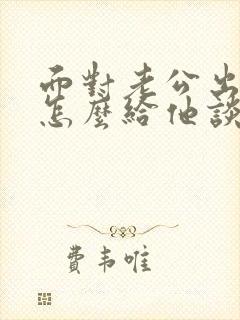 面對老公出
怎麼給他談
費韦唯